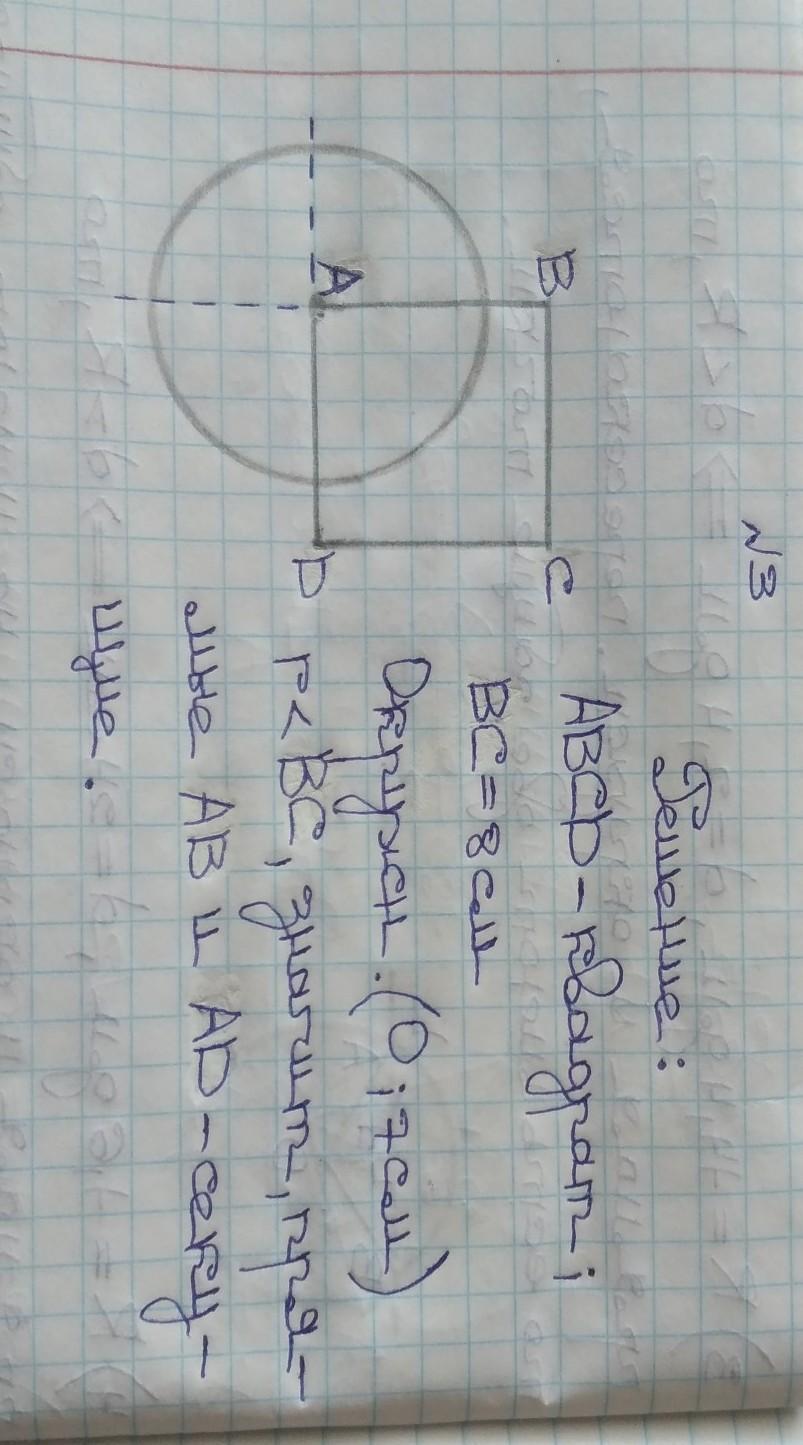 №3
B C
A D
Решение:
ABCD - квадрат;
BC = 8 см
Окружн. (O; 7 см)
r < BC, значит, пря-
мые AB и AD - секу-
щие.